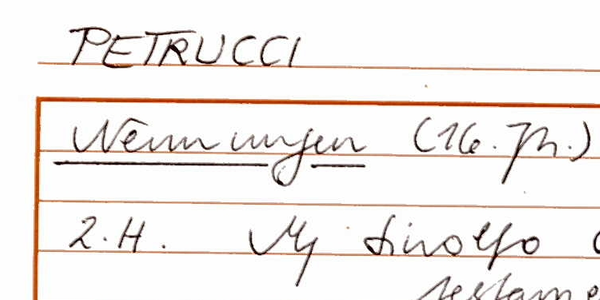 PETRUCCI
Nennungen (16. Jh.)
2. H. Mj Sinolfo
testame